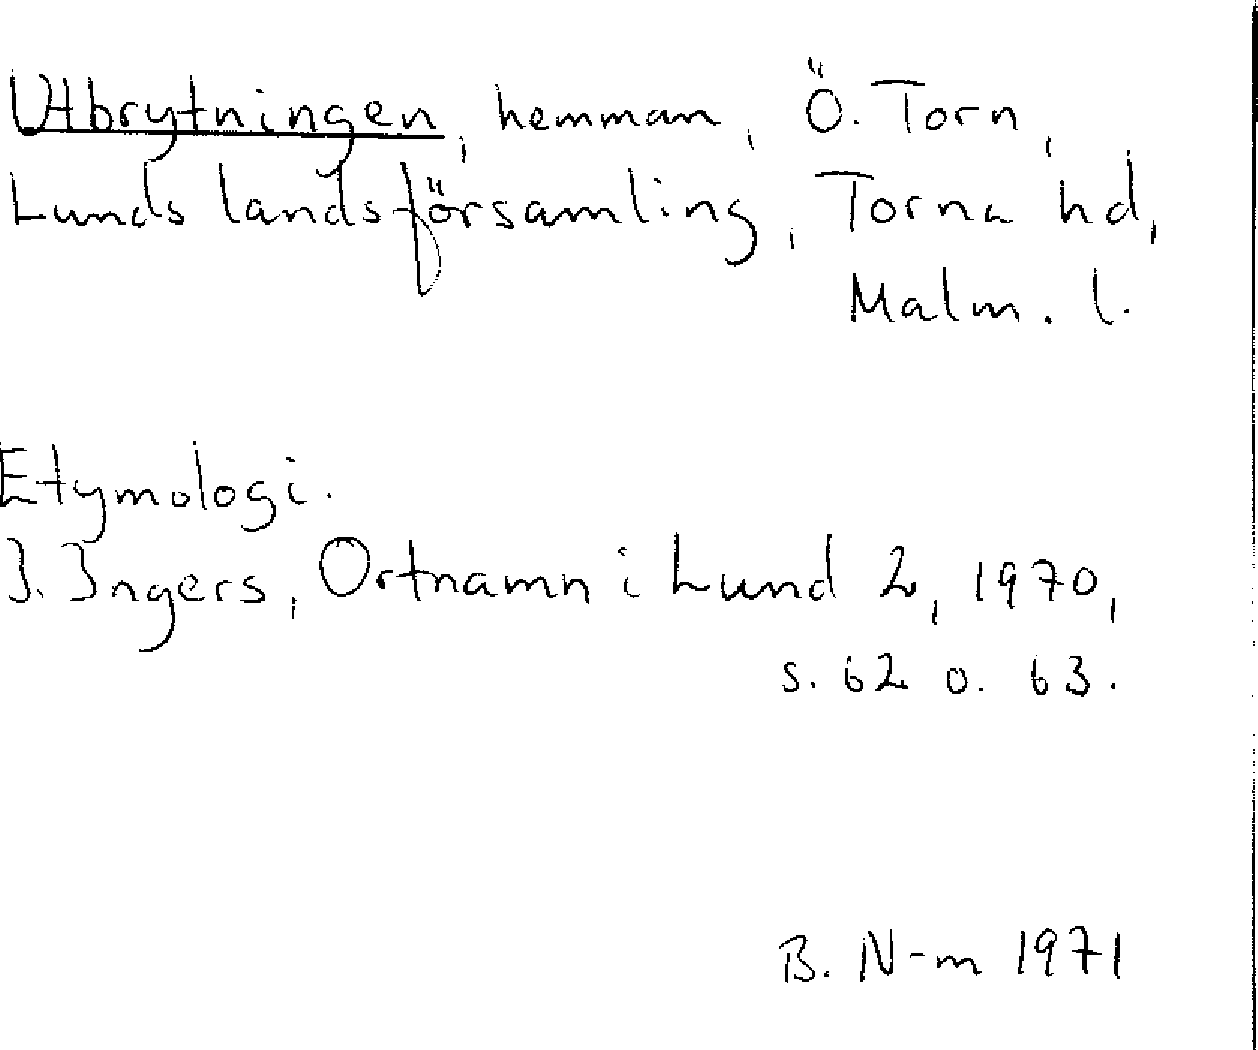 Utbrytningen, hemman, Ö. Torn,
Lunds landsförsamling, Torna hd,
Malm. l.
Etymologi.
I. Ingers, Ortnamn i Lund 2, 1970,
s. 62 o. 63.
B. N-m 1971